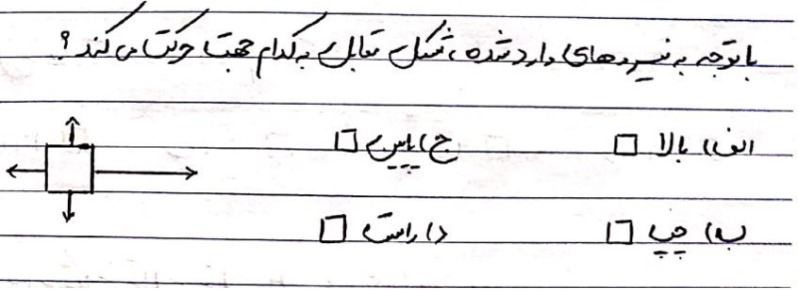 با توجه به نیروهای وارد شده، شکل مقابل به کدام جهت حرکت می کند ؟
الف) بالا □ ج) پایین □
ب) چپ □ د) راست □